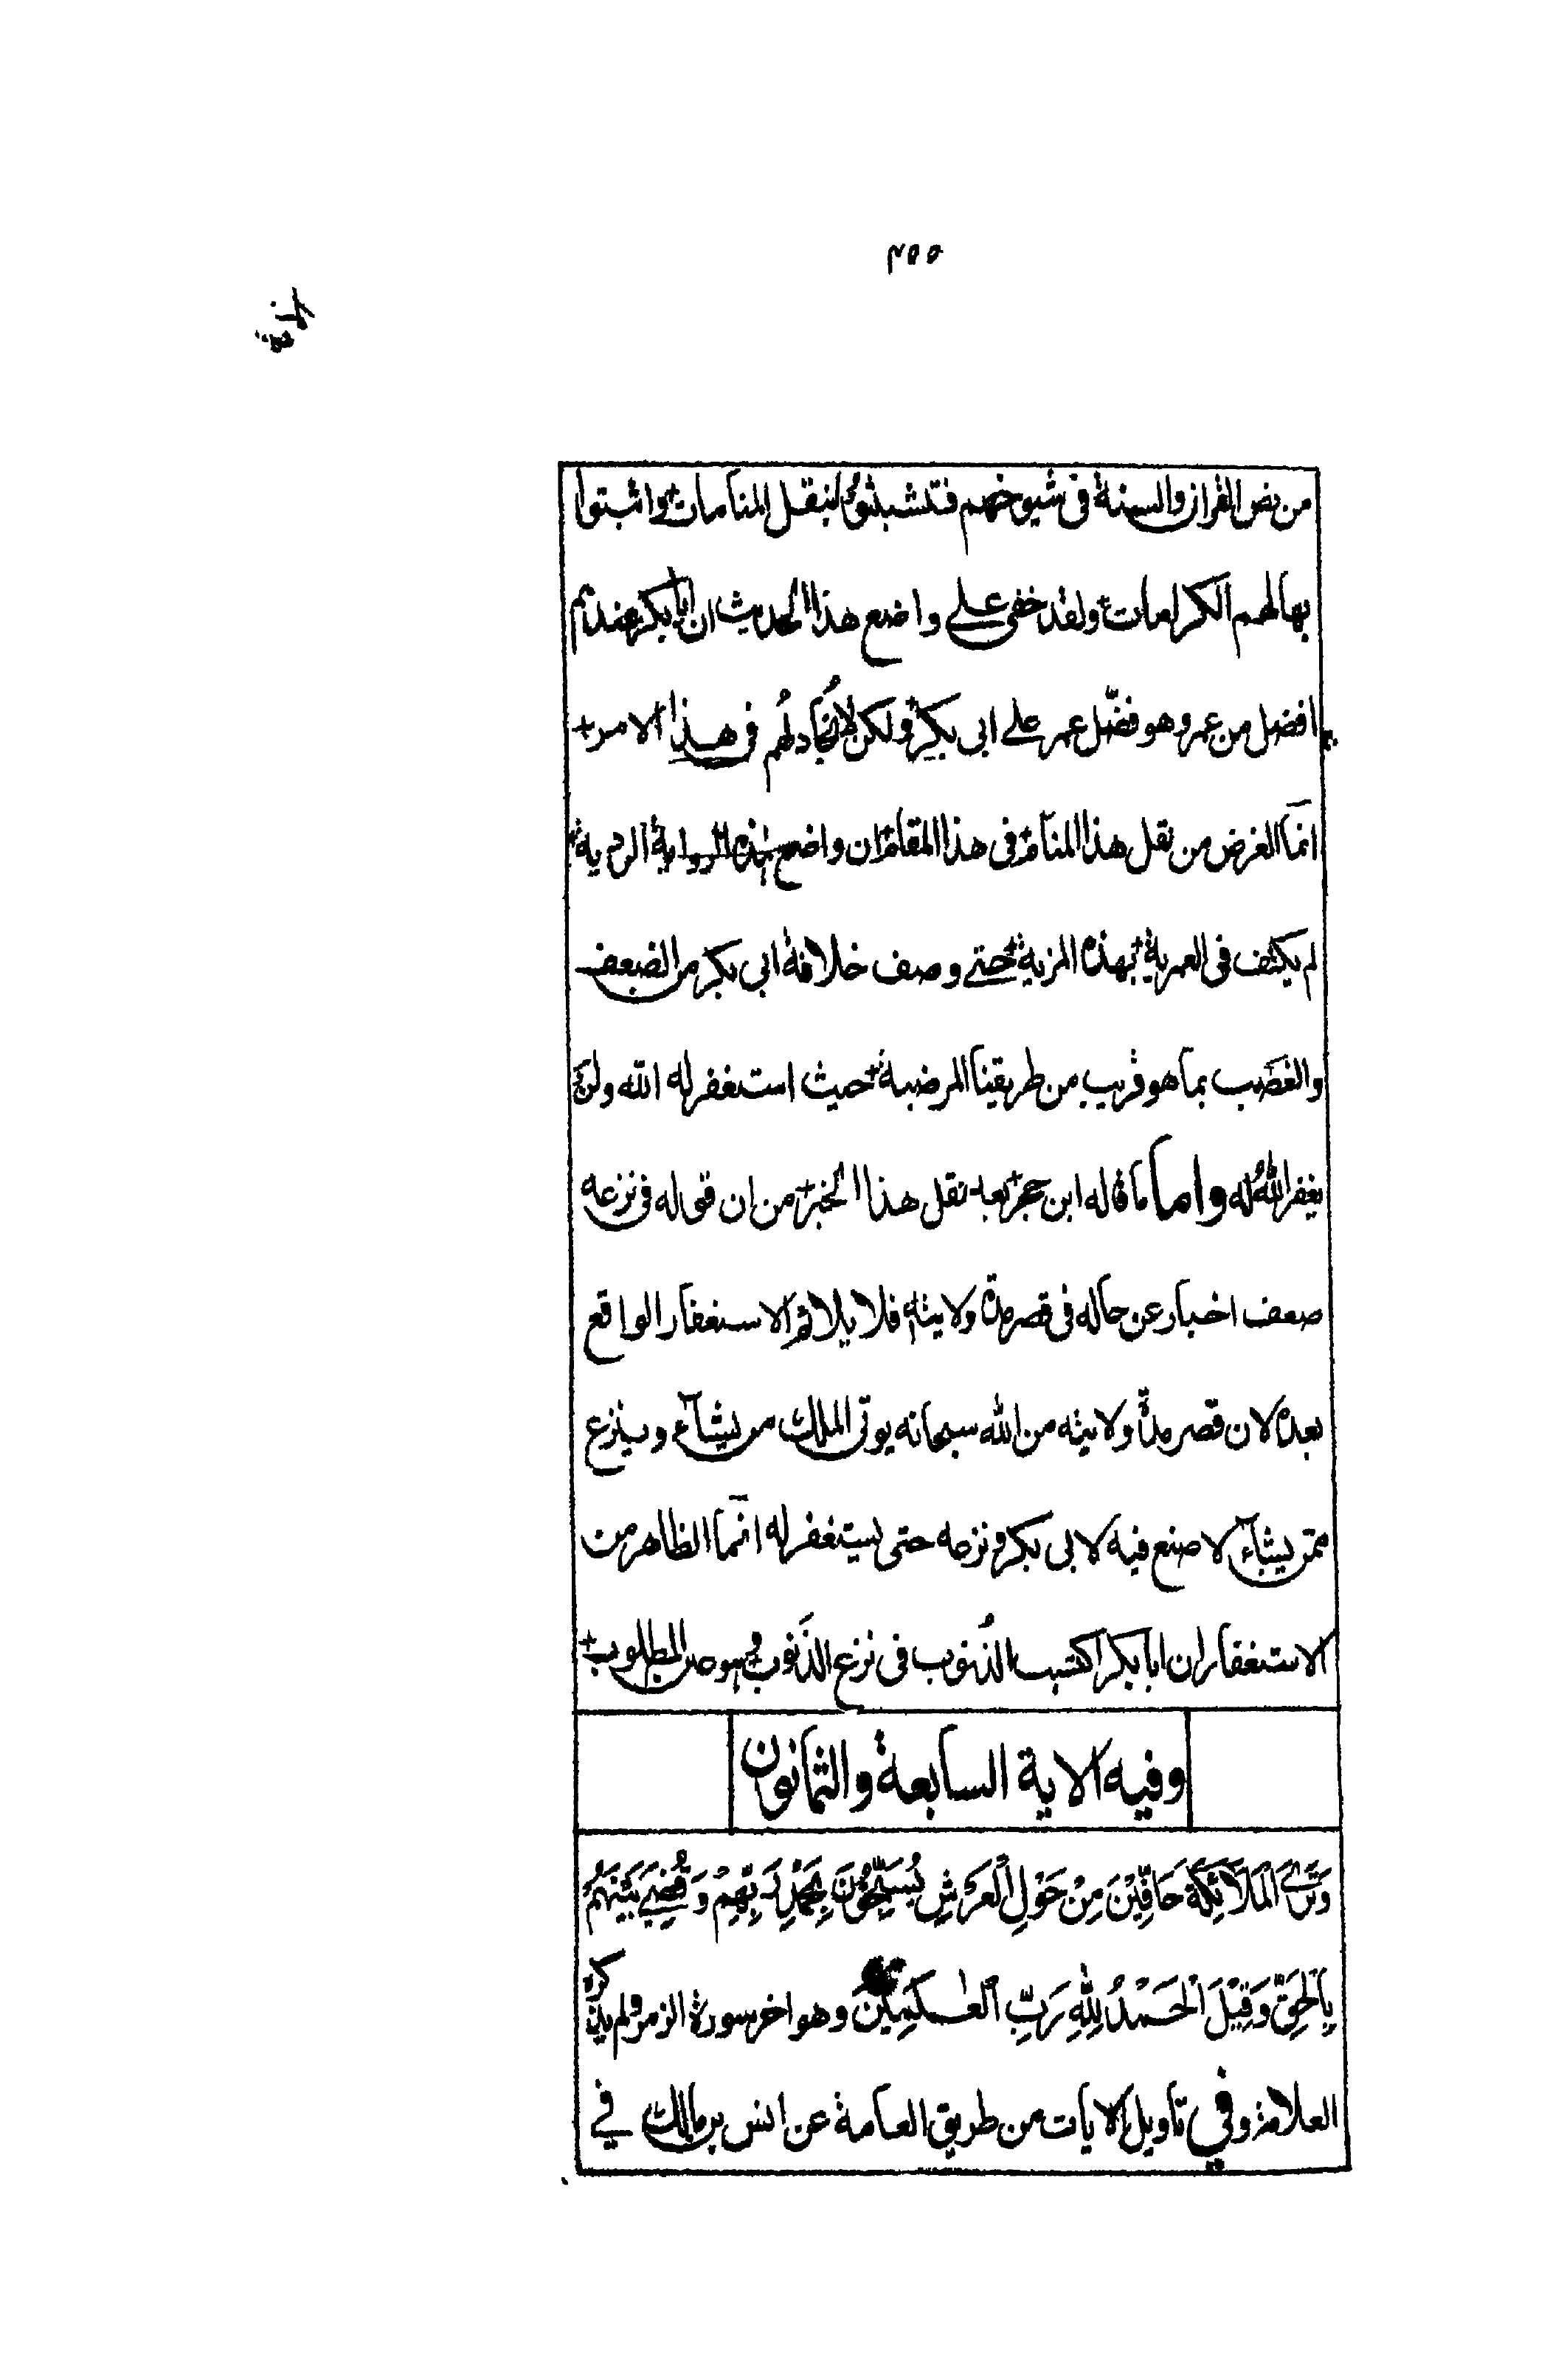 ٢٥٥
من نص القران والسنة فى شيوخهم فتشبثوا بنقل المنامات واثبتوا
بها لهم الكرامات ولقد خفى على واضع هذا الحديث ان ابا بكر عندهم
افضل من عمر وهو فضّل عمر على ابى بكر ولكن لا نُجادلهُم فى هذا الامر
انمّا الغرض من نقل هذا المنام فى هذا المقام ان واضع هذه الرواية الردية
لم يكتف فى العمرية بهذه المزية حتى وصف خلافة ابى بكر من الضعف
والغصب بما هو قريب من طريقينا المرضية حيث استغفر له الله ولن
يغفر اللهُ له واما ما قاله ابن حجر بعد نقل هذا الخبر من ان قوله فى نزعه
ضعف اخبار عن حاله فى قصر مدة ولايته فلا يلائم الاستغفار الواقع
بعده لان قصر مدة ولايته من الله سبحانه يوتى الملك من يشآء وينزع
ممّن يشآء لا صنع فيه لابى بكر ونزعه حتى يستغفر له انمّا الظاهر من
الاستغفار ان ابا بكر اكتسب الذُنوب فى نزع الذَنوب وهو عين المطلوب
وفيه الاية السابعة والثمانون
وَتَرَى الْمَلَائِكَةَ حَافِّيْنَ مِنْ حَوْلِ الْعَرْشِ يُسَبِّحُوْنَ بِحَمْدِ رَبِّهِمْ وَقُضِيَ بَيْنَهُمْ
بِالْحَقِّ وَقِيْلَ الْحَمْدُ لِلّٰهِ رَبِّ الْعٰلَمِيْنَ وهو اخر سورة الزمر ولم يذكره
العلامة وفي تاويل الايات من طريق العامة عن انس بن مالك في